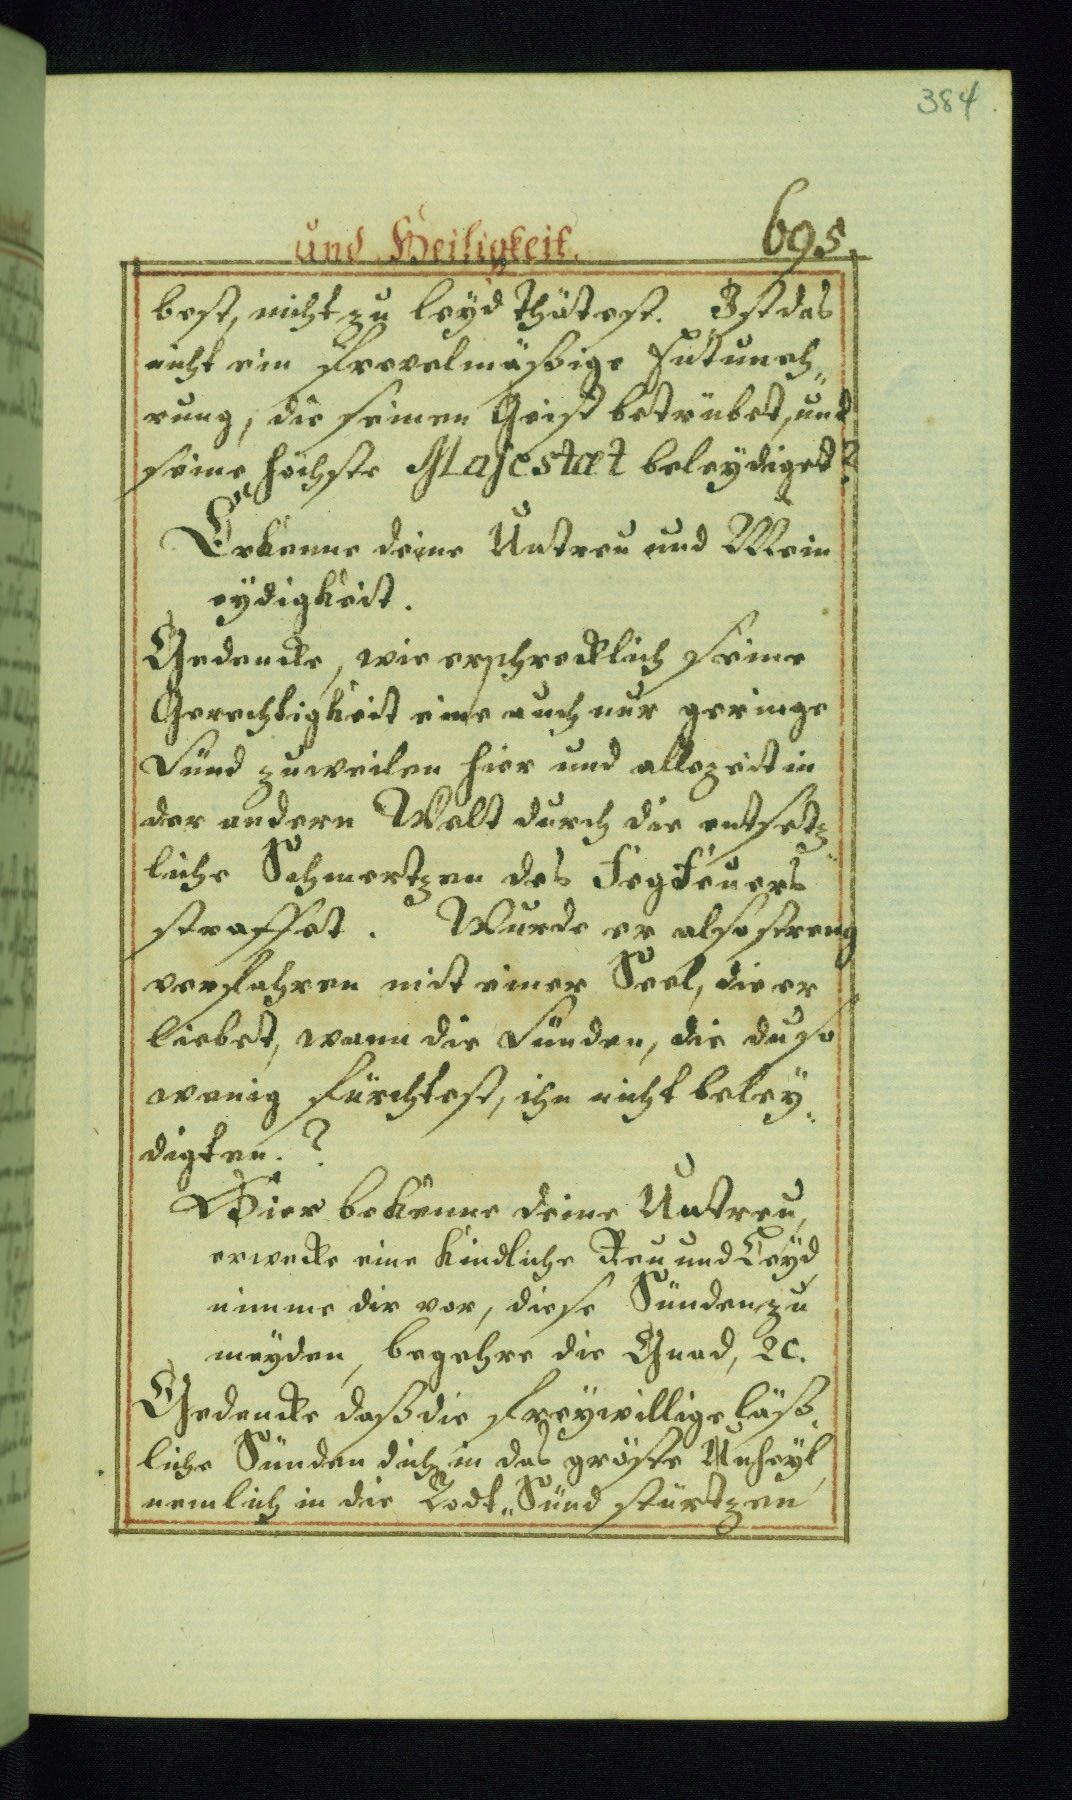 384
und Heiligkeit. 695.
best, nicht zu leyd thätest. Ist das
nicht ein frevelmäßige Entuneh„
rung, die seinen Geist betrübet, und
seine höchste Majestæt beleydiget?
Erkenne deine Untreu und Mein
eydigkeit.
Gedencke, wie erschrecklich seine
Gerechtigkeit eine auch nur geringe
Sünd zuweilen hier und allezeit in
der andern Welt durch die entsetz„
liche Schmertzen des Fegfeuers
straffet. Wurde er also streng
verfahren mit einer Seel, die er
liebet, wann die Sünden, die du so
wenig fürchtest, ihn nicht beley„
digten.?
Hier bekenne deine Untreu,
erwecke eine kindliche Reu und Leyd
nimme dir vor, diese Sünden zu
meyden, begehre die Gnad, 2c.
Gedencke daß die freywillige läß„
liche Sünden dich in das gröste Unheyl,
nemlich in die Todt„Sünd stürtzen